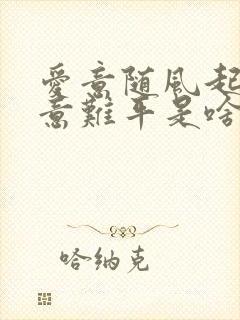 愛意随風起
意難平是啥
哈纳克